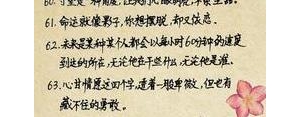 61. 命运就像影子,你想摆脱,却又依恋。
62. 未来是某种某个人都会以每小时60分钟的速度
到达的所在,无论他在干些什么,无论他是谁。
63. 心甘情愿这四个字,透着一股卑微,但也有
藏不住的勇敢。